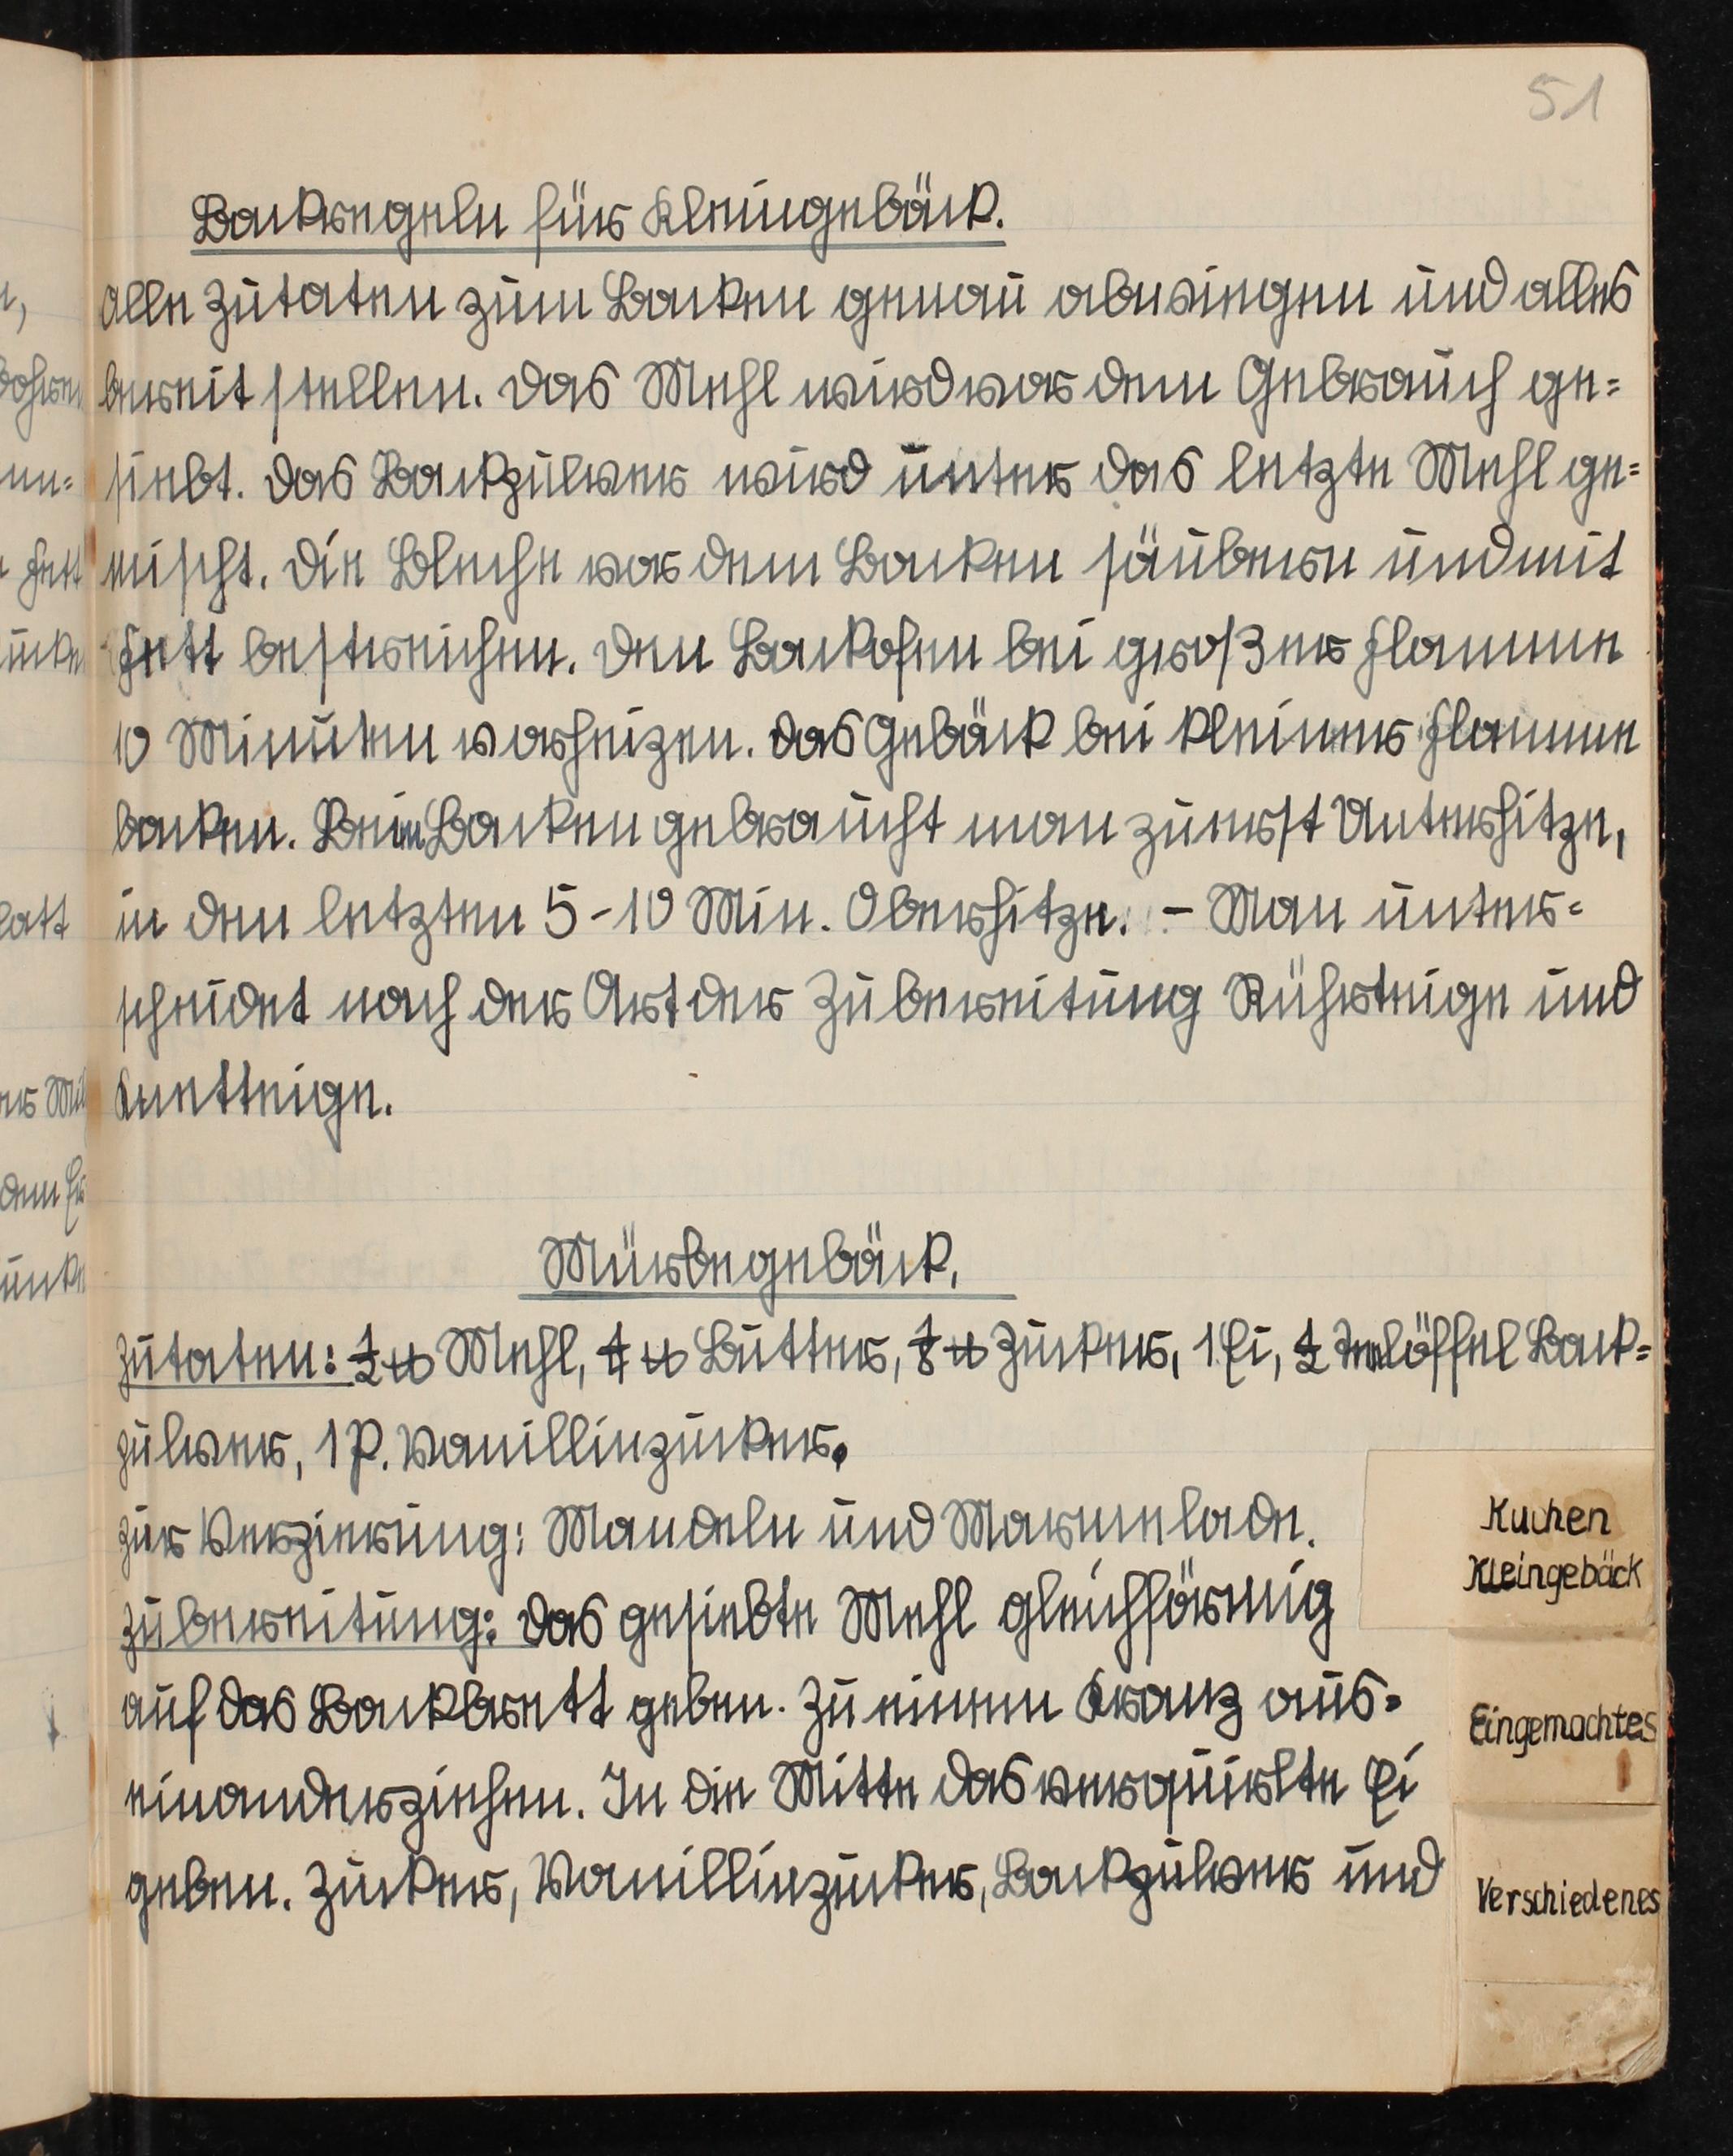 51
Backregeln für Kleingebäck.
Alle Zutaten zum Backen genau abwiegen und alles
bereit stellen. Das Mehl wird vor dem Gebrauch ge=
siebt. Das Backpulver wird unter das letzte Mehl ge=
mischt. Die Bleche vor dem Backen säubern und mit
Fett bestreichen. Den Backofen bei großer Flamme
10 Minuten vorheizen. Das Gebäck bei kleiner Flamme
backen. Beim Backen gebraucht man zuerst Unterhitze,
in den letzten 5-10 Min. Oberhitze. - Man unter=
scheidet nach der Art der Zubereitung Rührteige und
Knetteige.
Mürbegebäck.
Zutaten: ½ ℔ Mehl, ¼ ℔ Butter, ⅛ ℔ Zucker, 1 Ei, ½ Teelöffel Back=
pulver, 1 P. Vanillinzucker.
Zur Verzierung: Mandeln und Marmelade.
Zubereitung: Das gesiebte Mehl gleichförmig
auf das Backbrett geben. Zu einem Kranz aus=
einanderziehen. In die Mitte das verquirlte Ei
geben. Zucker, Vanillinzucker, Backpulver und
Kuchen
Kleingebäck
Eingemachtes
Verschiedenes